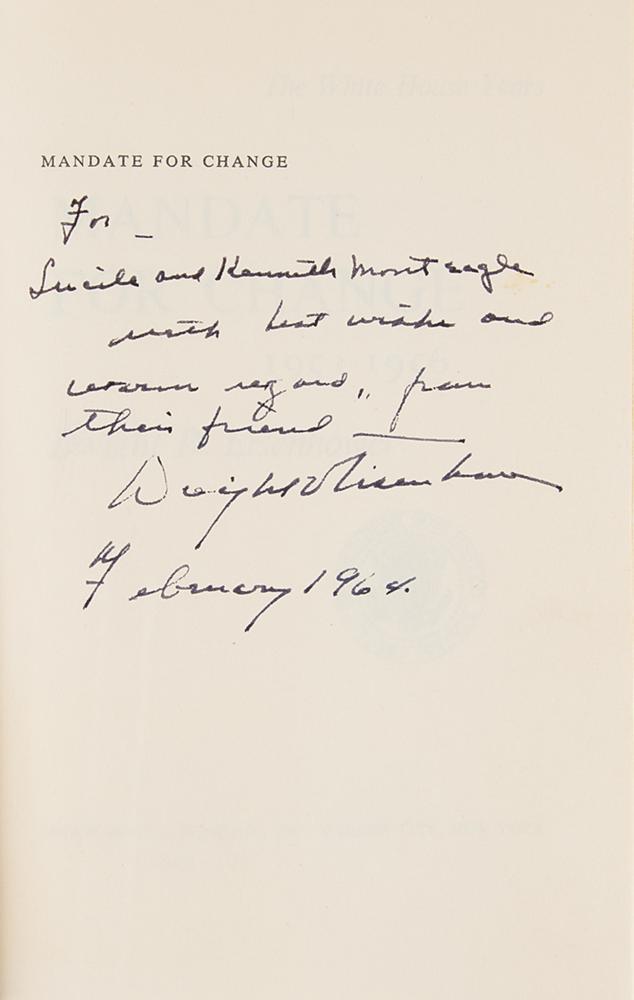 The White House Years
MANDATE FOR CHANGE
For –
Lucile and Kenneth Monteagle
with best wishes and
warm regards, from
their friend
Dwight D Eisenhower
February 1964.
MANDATE
FOR CHANGE
1953-1956